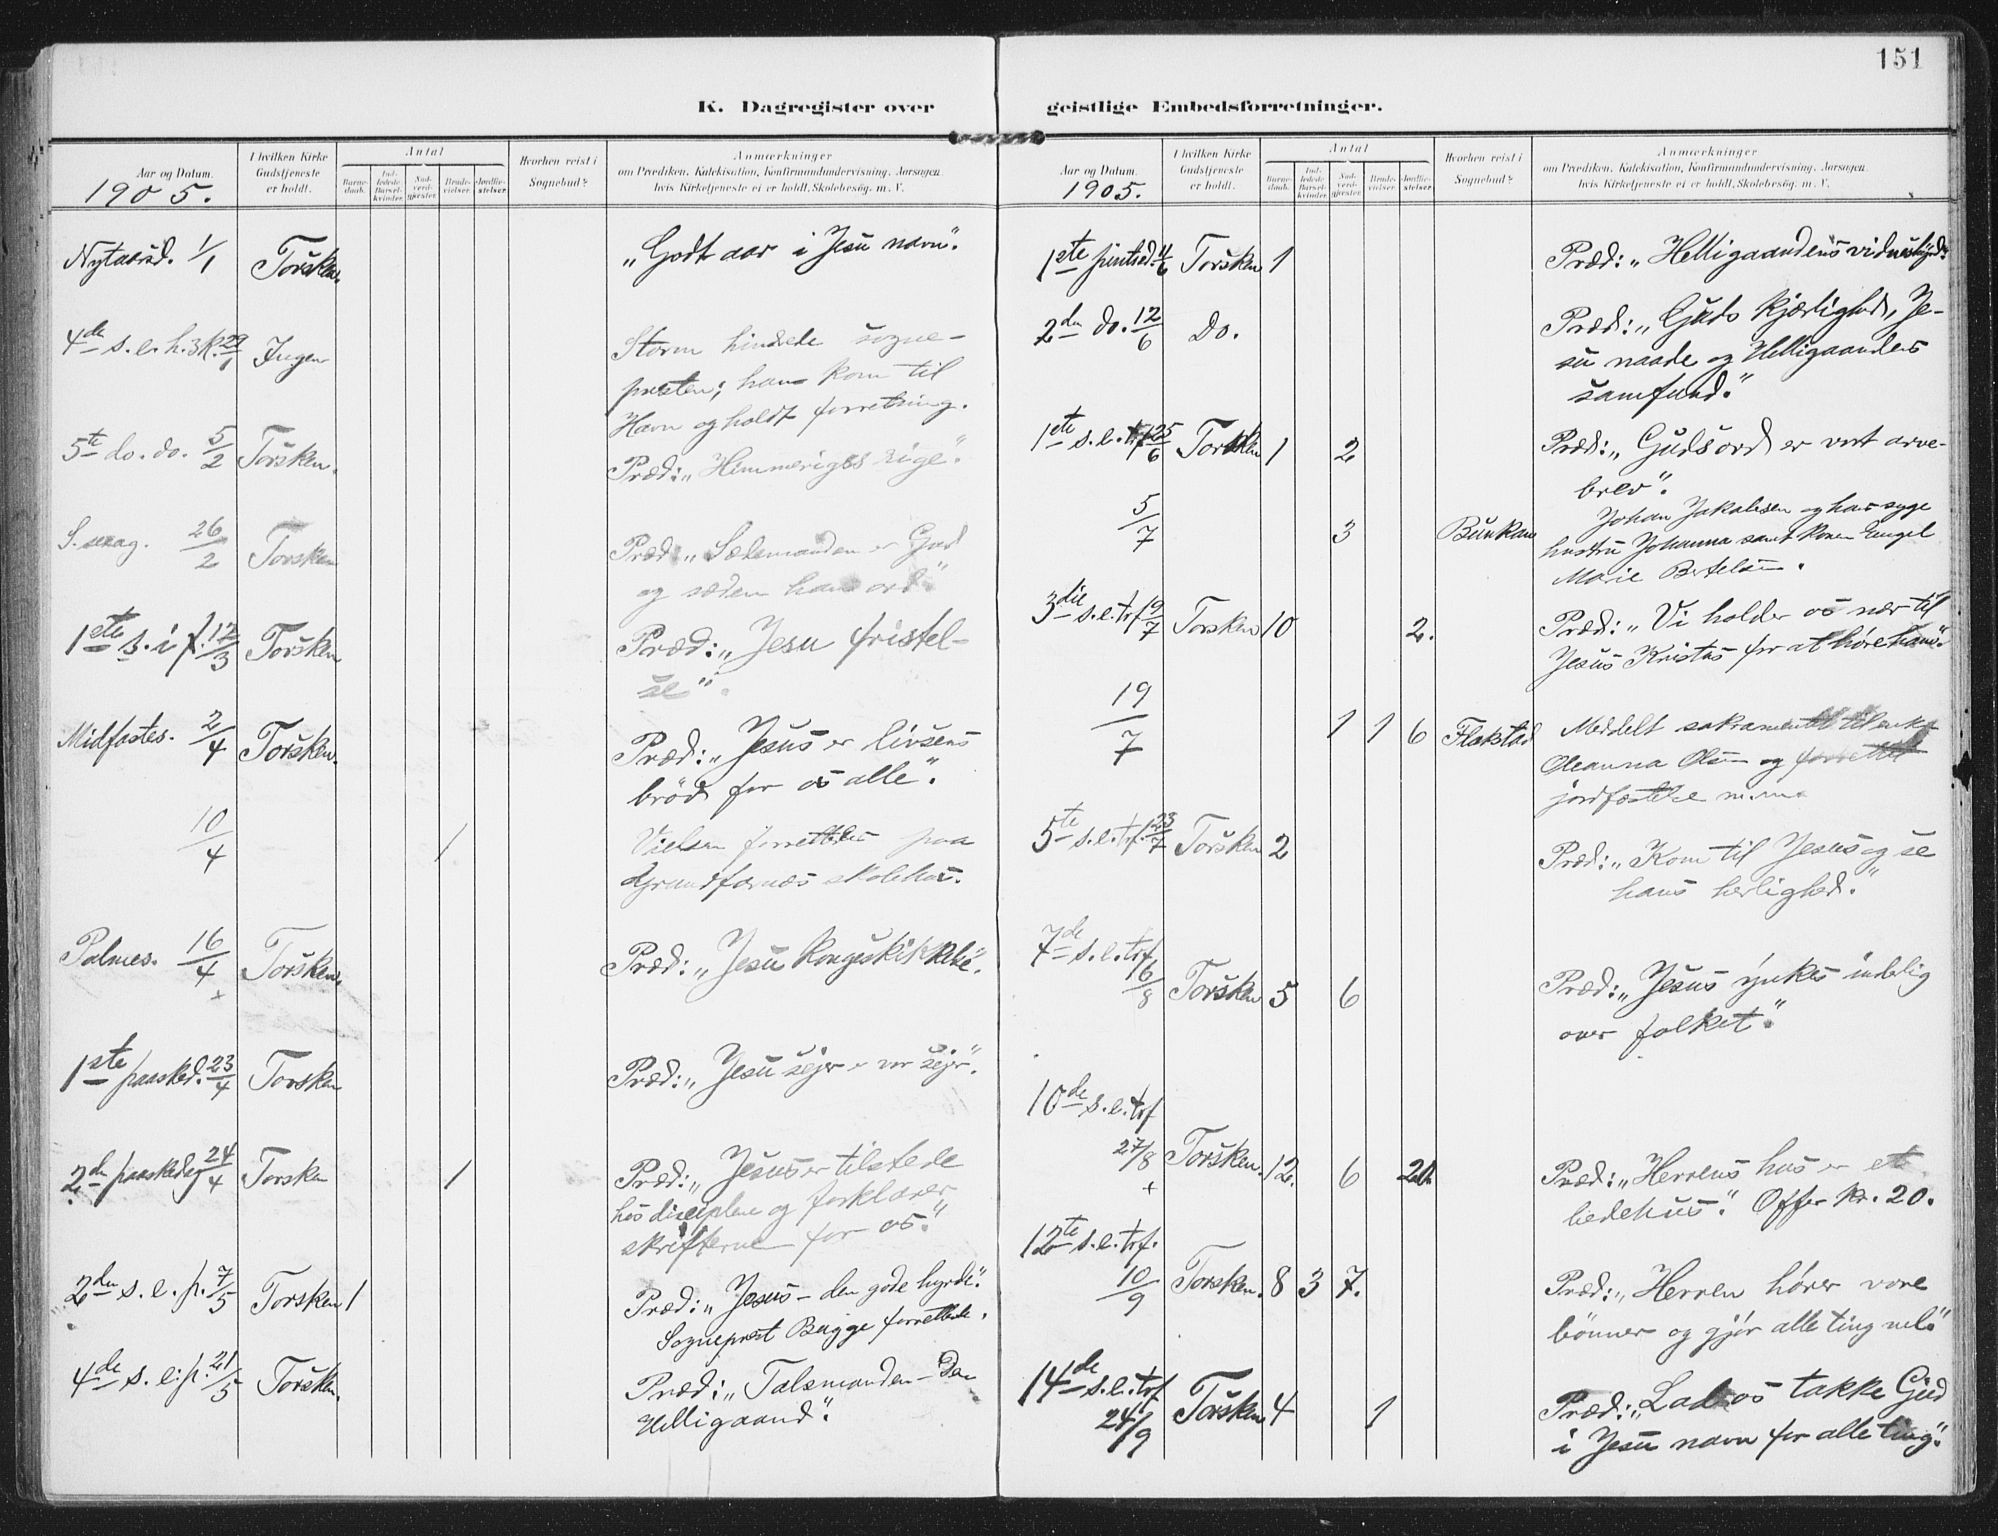 151
K. Dagregister over geistlige Embedsforretninger.
Aar og Datum.
1905.
I hvilken Kirke Gudstjeneste er holdt.
Antal
Barne-daab.
Ind-ledede Barsel-kvinder.
Nad-verd-gjæster.
Brude-vielser.
Jordfæ-stelser.
Hvorhen reist i Sognebud?
Anmærkninger
om Prædiken, Katekisation, Konfirmandundervisning, Aarsagen, hvis Kirketjeneste ei er holdt, Skolebesøg, m. V.
Nytaarsd. 1/1 Torsken. „Godt aar i Jesu navn".
4de s. e. h. 3 k. 29/1 Ingen Storm hindrede sogne-
presten; han kom til
Havn og holdt forretning.
5te do. do. 5/2 Torsken. Præd: „Himmeriges rige".
S. sexag. 26/2 Torsken Præd: „Sædemanden er Gud
og sæden hans ord."
1ste s. i f. 12/3 Torsken Præd: „Jesu fristel-
se".
Midfastes. 2/4 Torsken. Præd: „Jesus er livsens
brød for os alle".
10/4 1 Vielsen forrettedes paa
Grundfarnæs skolehus.
Palmes. 16/4 Torsken. Præd: „Jesu kongeskikkelse".
+
1ste paasked. 23/4 Torsken Præd: „Jesu sejer er vor sejr".
2den paaskedag 24/4 Torsken 1 Præd: „Jesus er tilstede
hos disciplene og forklarer
skrifterne for os."
2den s. e. p. 7/5 Torsken 1 Præd: „Jesus – den gode hyrde".
Sogneprest Bugge forrettede.
4de s. e. p. 21/5 Torsken. Præd: „Talsmanden – Den
Helligaand".
Aar og Datum.
1905.
I hvilken Kirke Gudstjeneste er holdt.
Antal
Barne-daab.
Ind-ledede Barsel-kvinder.
Nad-verd-gjæster.
Brude-vielser.
Jordfæ-stelser.
Hvorhen reist i Sognebud?
Anmærkninger
om Prædiken, Katekisation, Konfirmandundervisning, Aarsagen, hvis Kirketjeneste ei er holdt, Skolebesøg, m. V.
1ste pintsed. 11/6 Torsken 1 Præd: „Helligaandens vidnesbyrd".
2den do. 12/6 Do. Præd: „Guds kjærlighed, Je-
su naade og Helligaandens
samfund."
1ste s. e. trf. 25/6 Torsken 1 2 Præd: „Guds ord er vort arve-
brev".
5/7 3 Bunkan Johan Jakobsen og hans syge
hustru Johanna samt konen Engel
Marie Bertelsen.
3die s. e. trf. 9/7 Torsken 10 2. Præd: „Vi holder os nær til
Jesus Kristus for at høre ham".
19/7 1 1 6 Flakstad Meddelt sakramentet til enke
Oleanna Olsen og forrettet
jordfæstelse m.m.
5te s. e. trf. 23/7 Torsken 2 Præd: „Kom til Jesus og se
hans herlighed."
7de s. e. trf. 16/8 Torsken 5 6 Præd: „Jesus ynkes inderlig
over folket."
10de s. e. trf
27/8 Torsken. 12. 6 20. Præd: „Herrens hus er et
bedehus". Offer kr. 20.
+
12te s. e. trf.
10/9 Torsken. 8 3 7. Præd: „Herren hører vore
bønner og gjør alle ting vel."
14de s. e. trf
24/9 Torsken 4 1 Præd: „Lad os takke Gud
i Jesu navn for alle ting".